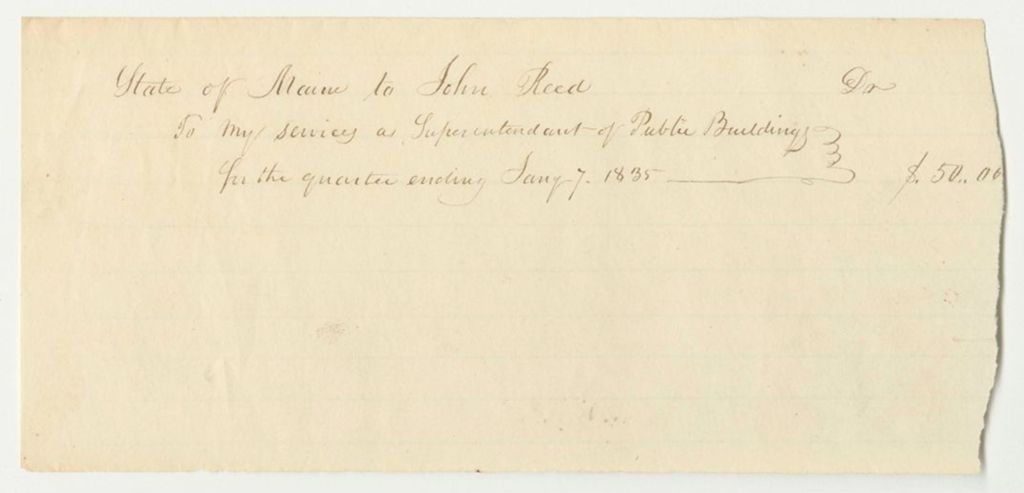 State of Maine to John Reed Dr
To my services as Superentendant of Public Buildings
for the quarter ending Jany 7. 1835 $. 50..00